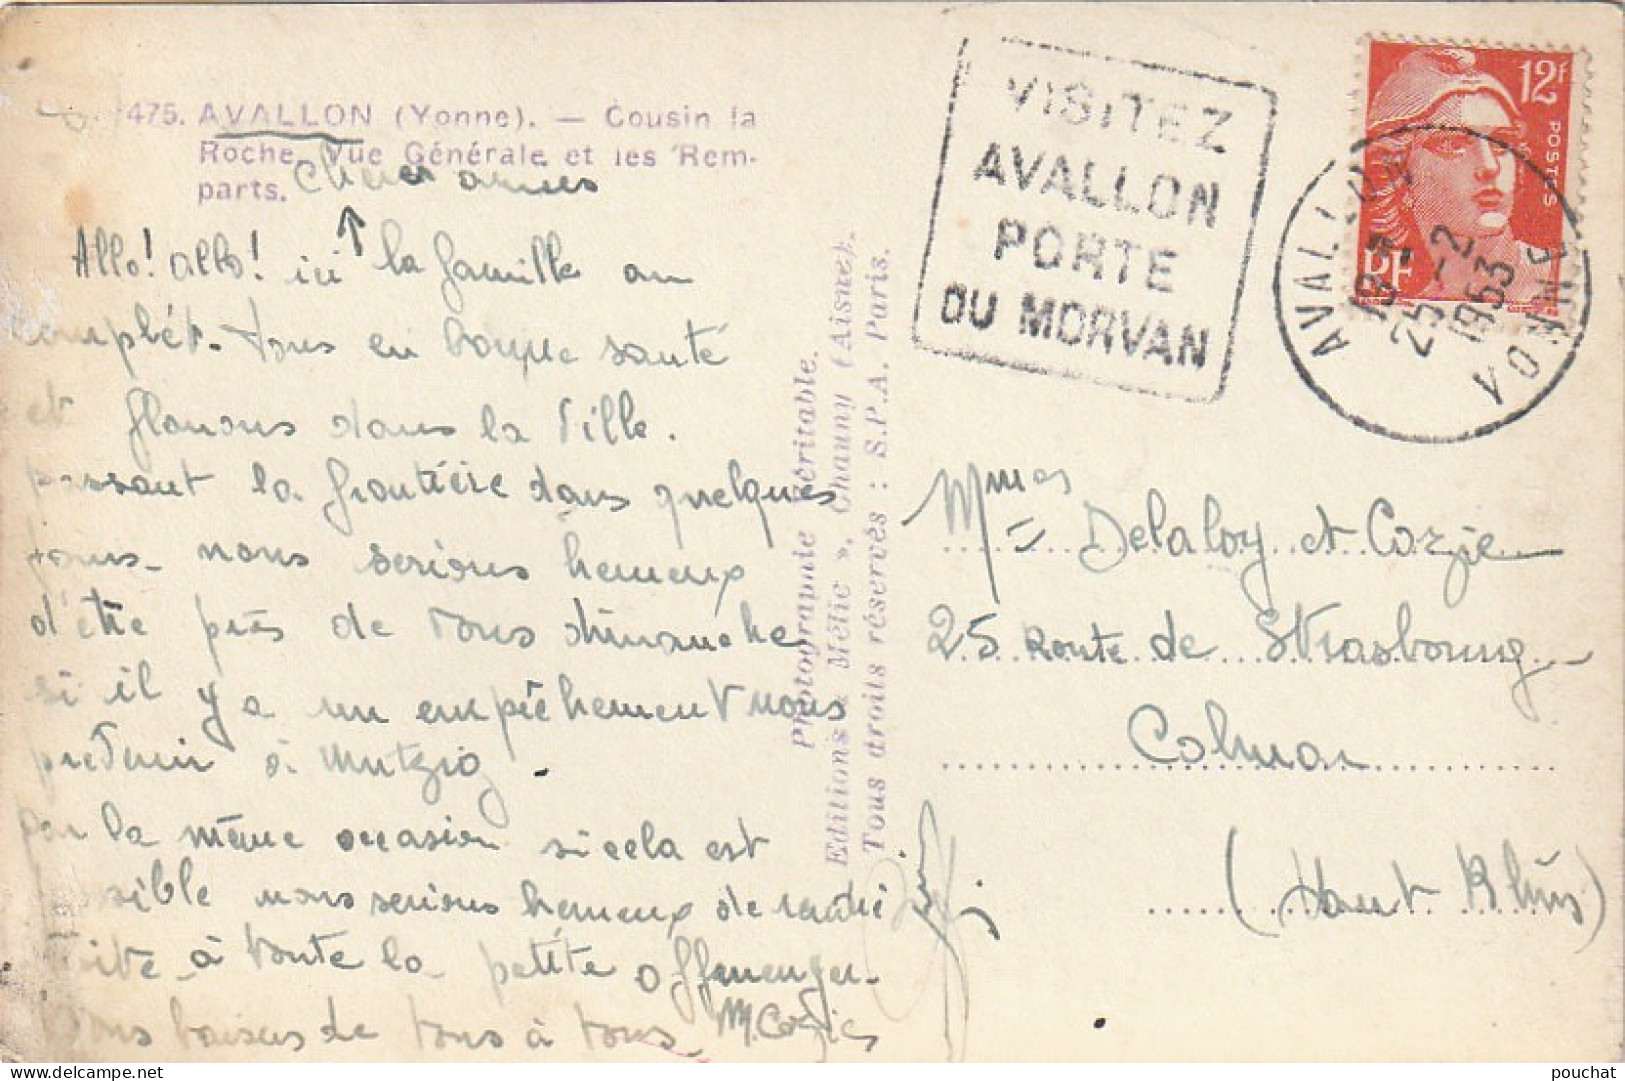 475. AVALLON (Yonne). — Cousin la
Roche, Vue Générale et les Rem-
parts.
cheres amies
Allo! allo! ici la famille au
complét. tous en bonne santé
et flanons dans la Ville.
passant la frontière dans quelques
jours. nous serions heureux
d'être près de vous dimanche
si il y a un empêchement nous
prevenir à Mutzig.
par la même occasion si cela est
possible nous serions heureux de rendre
visite à toute la petite
bons baisers de tous à tous. M. Cozic
Photographie Véritable.
Editions « Mélic », Chauny (Aisne).
Tous droits réservés : S.P.A. Paris.
VISITEZ
AVALLON
PORTE
DU MORVAN
12f
POSTES
RF
AVALLON
25-2
1953
YONNE
Mmes Delaloy et Cozic
25 Route de Strasbourg
Colmar
(Haut Rhin)
https://www.delcampe.net
pouchat